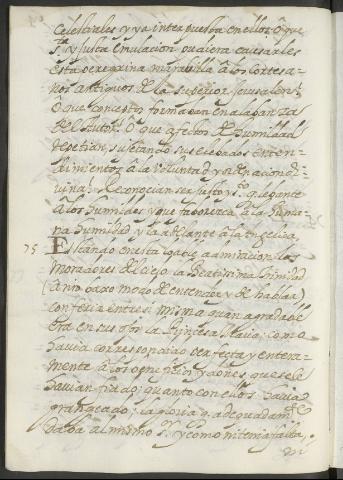 celestiales y ya interpuesta en ellos. O que
s.ta y justa emulacion pudiera causarles
esta peregrina marabilla à los cortesa-
nos antiguos de la superior Jerusalen!
O que conceptos formaban en alabanza
del Autor! O que afectos de humildad
repetian, sujetando sus elebados enten-
dimientos à la voluntad y ordenacion di-
vina; reconocian ser justo y s.to q. lebante
à los humildes y que faborezca à la huma-
na humildad y la adelante à la angelica.
75 Estando en esta loable admiracion los
moradores del cielo la Beatissima trinidad
(à nro. baxo modo de entender y de hablar)
conferia entre si misma quan agradable
era en sus ojos la Princesa Maria; como
havia correspondido perfecta y entera-
mente à los beneficios y dones que se la
havian fiado; quanto con ellos havia
grangeado; la gloria q. adequadam.te
daba al mismo S.r y como ni tenia falta,